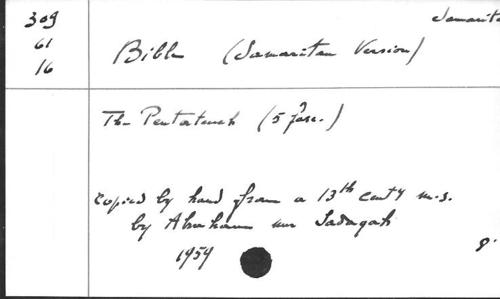 309
61
16
Samarita
Bible (Samaritan Version)
The Pentateuch (5 fasc.)
Copied by hand from a 13th centy ms.
by Abraham Sadaqah
1959
8°